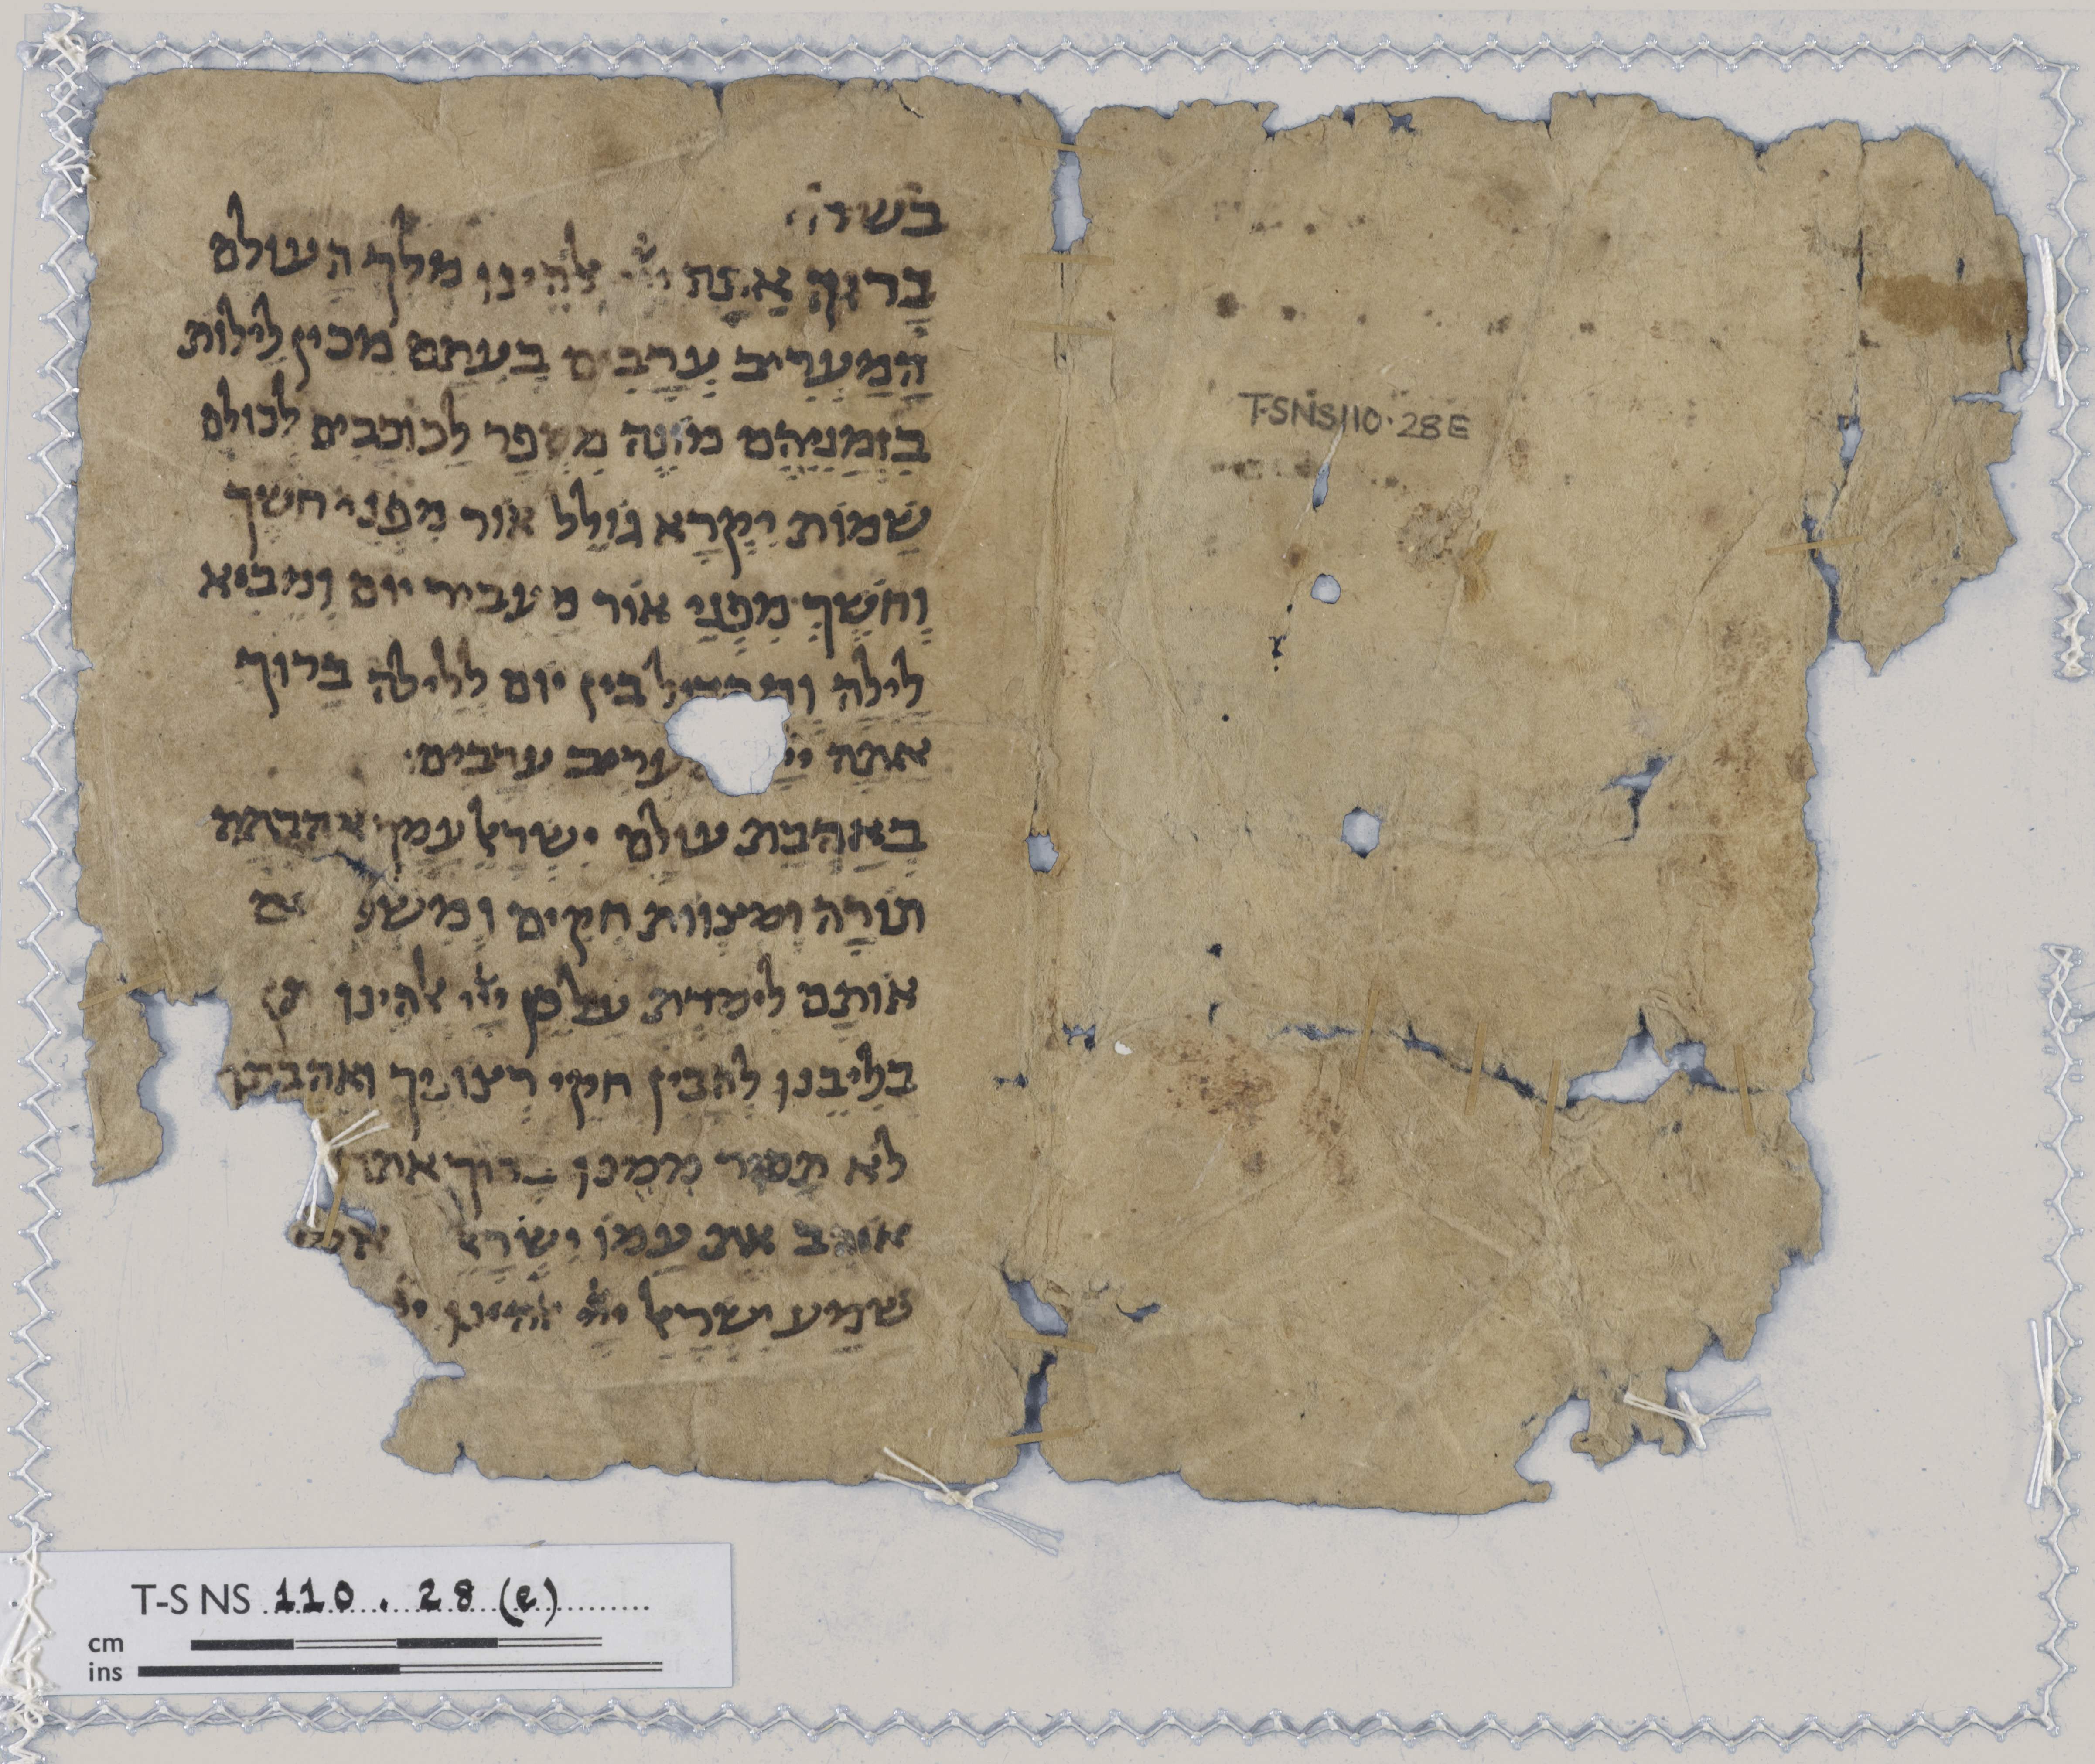 בשר
ברוך אתה ייי אלהינו מלך העולם
המעריב ערבים בעתם מכין לילות
בזמניהם מונה מספר לכוכבים לכולם
שמות יקרא גולל אור מפני חשך
וחשך מפני אור מעביר יום ומביא
לילה בין יום ללילה ברוך
אתה ערבים
באהבת עולם ישראל עמך אהבתה
תורה ומצוות חקים
אותם לימדת על כן ייי אלהינו
בליבנו להבין חקי רצוניך ואהבתך
לא תסיר ממנו ברוך אתה
אוהב את עמו ישראל
שמע ישראל ייי אלהינו
T-SNS110.28E
T-S NS 110.28(e)
cm
ins